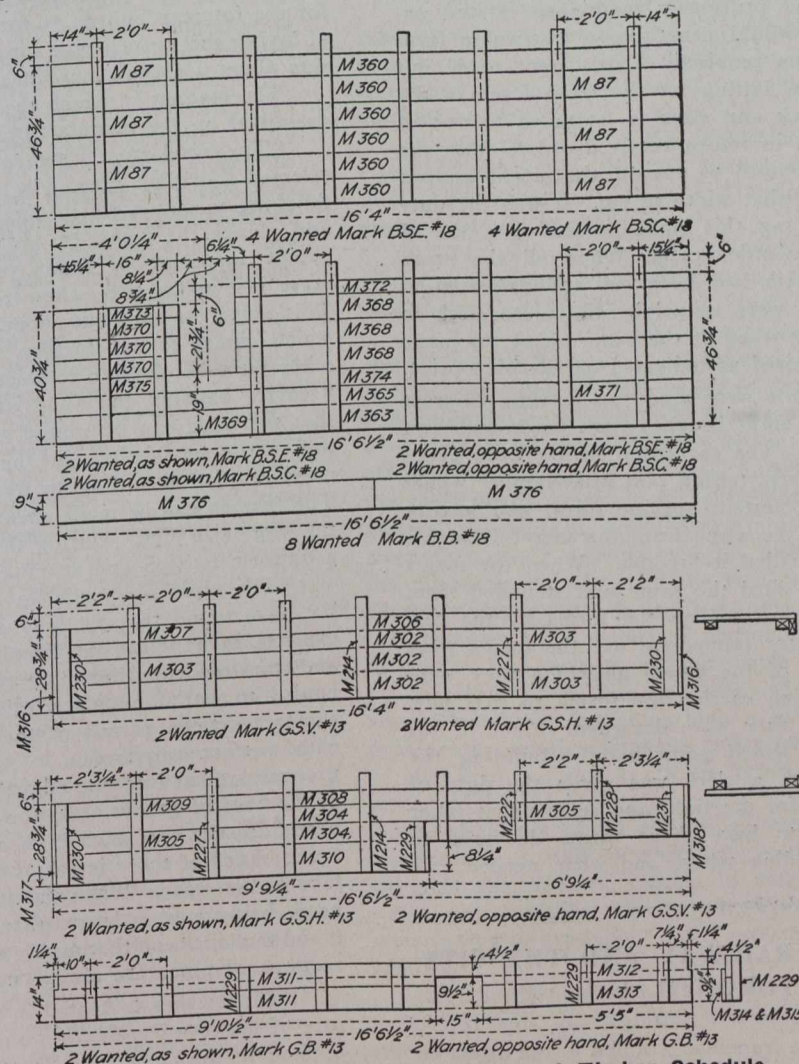 14" 2'0" 2'0" 14"
6"
46¾"
M 87 M 360
M 360 M 87
M 87 M 360
M 360 M 87
M 87 M 360
M 360 M 87
16'4"
4 Wanted Mark B.S.E. #18 4 Wanted Mark B.S.C. #18
4'0¼" 6¼"
15¼" 16" 2'0" 2'0" 15¼" 6"
8¼"
8¾"
6"
21¾"
19"
40¾"
46¾"
M373 M372
M370 M368
M370 M368
M370 M368
M375 M374
M365 M371
M369 M363
16'6½"
2 Wanted, as shown, Mark B.S.E. #18 2 Wanted, opposite hand, Mark B.S.E. #18
2 Wanted, as shown, Mark B.S.C. #18 2 Wanted, opposite hand, Mark B.S.C. #18
9" M 376 M 376
16'6½"
8 Wanted Mark B.B. #18
2'2" 2'0" 2'0" 2'0" 2'2"
6"
28¾"
M307 M306
M302 M303
M303 M302
M302 M303
M230 M214 M227 M230
M316 M316
16'4"
2 Wanted Mark G.S.V. #13 2 Wanted Mark G.S.H. #13
2'3¼" 2'0" 2'2" 2'3¼"
6"
28¾"
M309 M308
M304 M305
M305 M304
M310
M230 M227 M214 M229 M222 M228 M231
M317 M318
8¼"
9'9¼" 6'9¼"
16'6½"
2 Wanted, as shown, Mark G.S.H. #13 2 Wanted, opposite hand, Mark G.S.V. #13
1¼" 10" 2'0" 4½" 2'0" 7¼" 1¼" 4½"
14" 9½" 9½"
M229 M311 M229 M312 M229
M311 M313
M314 & M315
9'10½" 15" 5'5"
16'6½"
2 Wanted, as shown, Mark G.B. #13 2 Wanted, opposite hand, Mark G.B. #13
Schedule